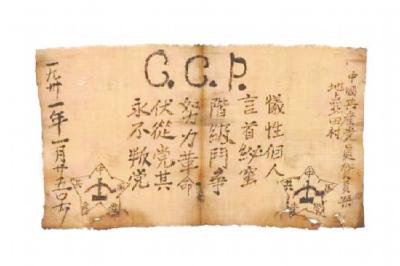 C.C.P.
中國共產党員
地点北田村
犧牲個人
言首秘蜜
階級鬥争
努力革命
伏從党其
永不叛党
一九卅一年一月廿五日